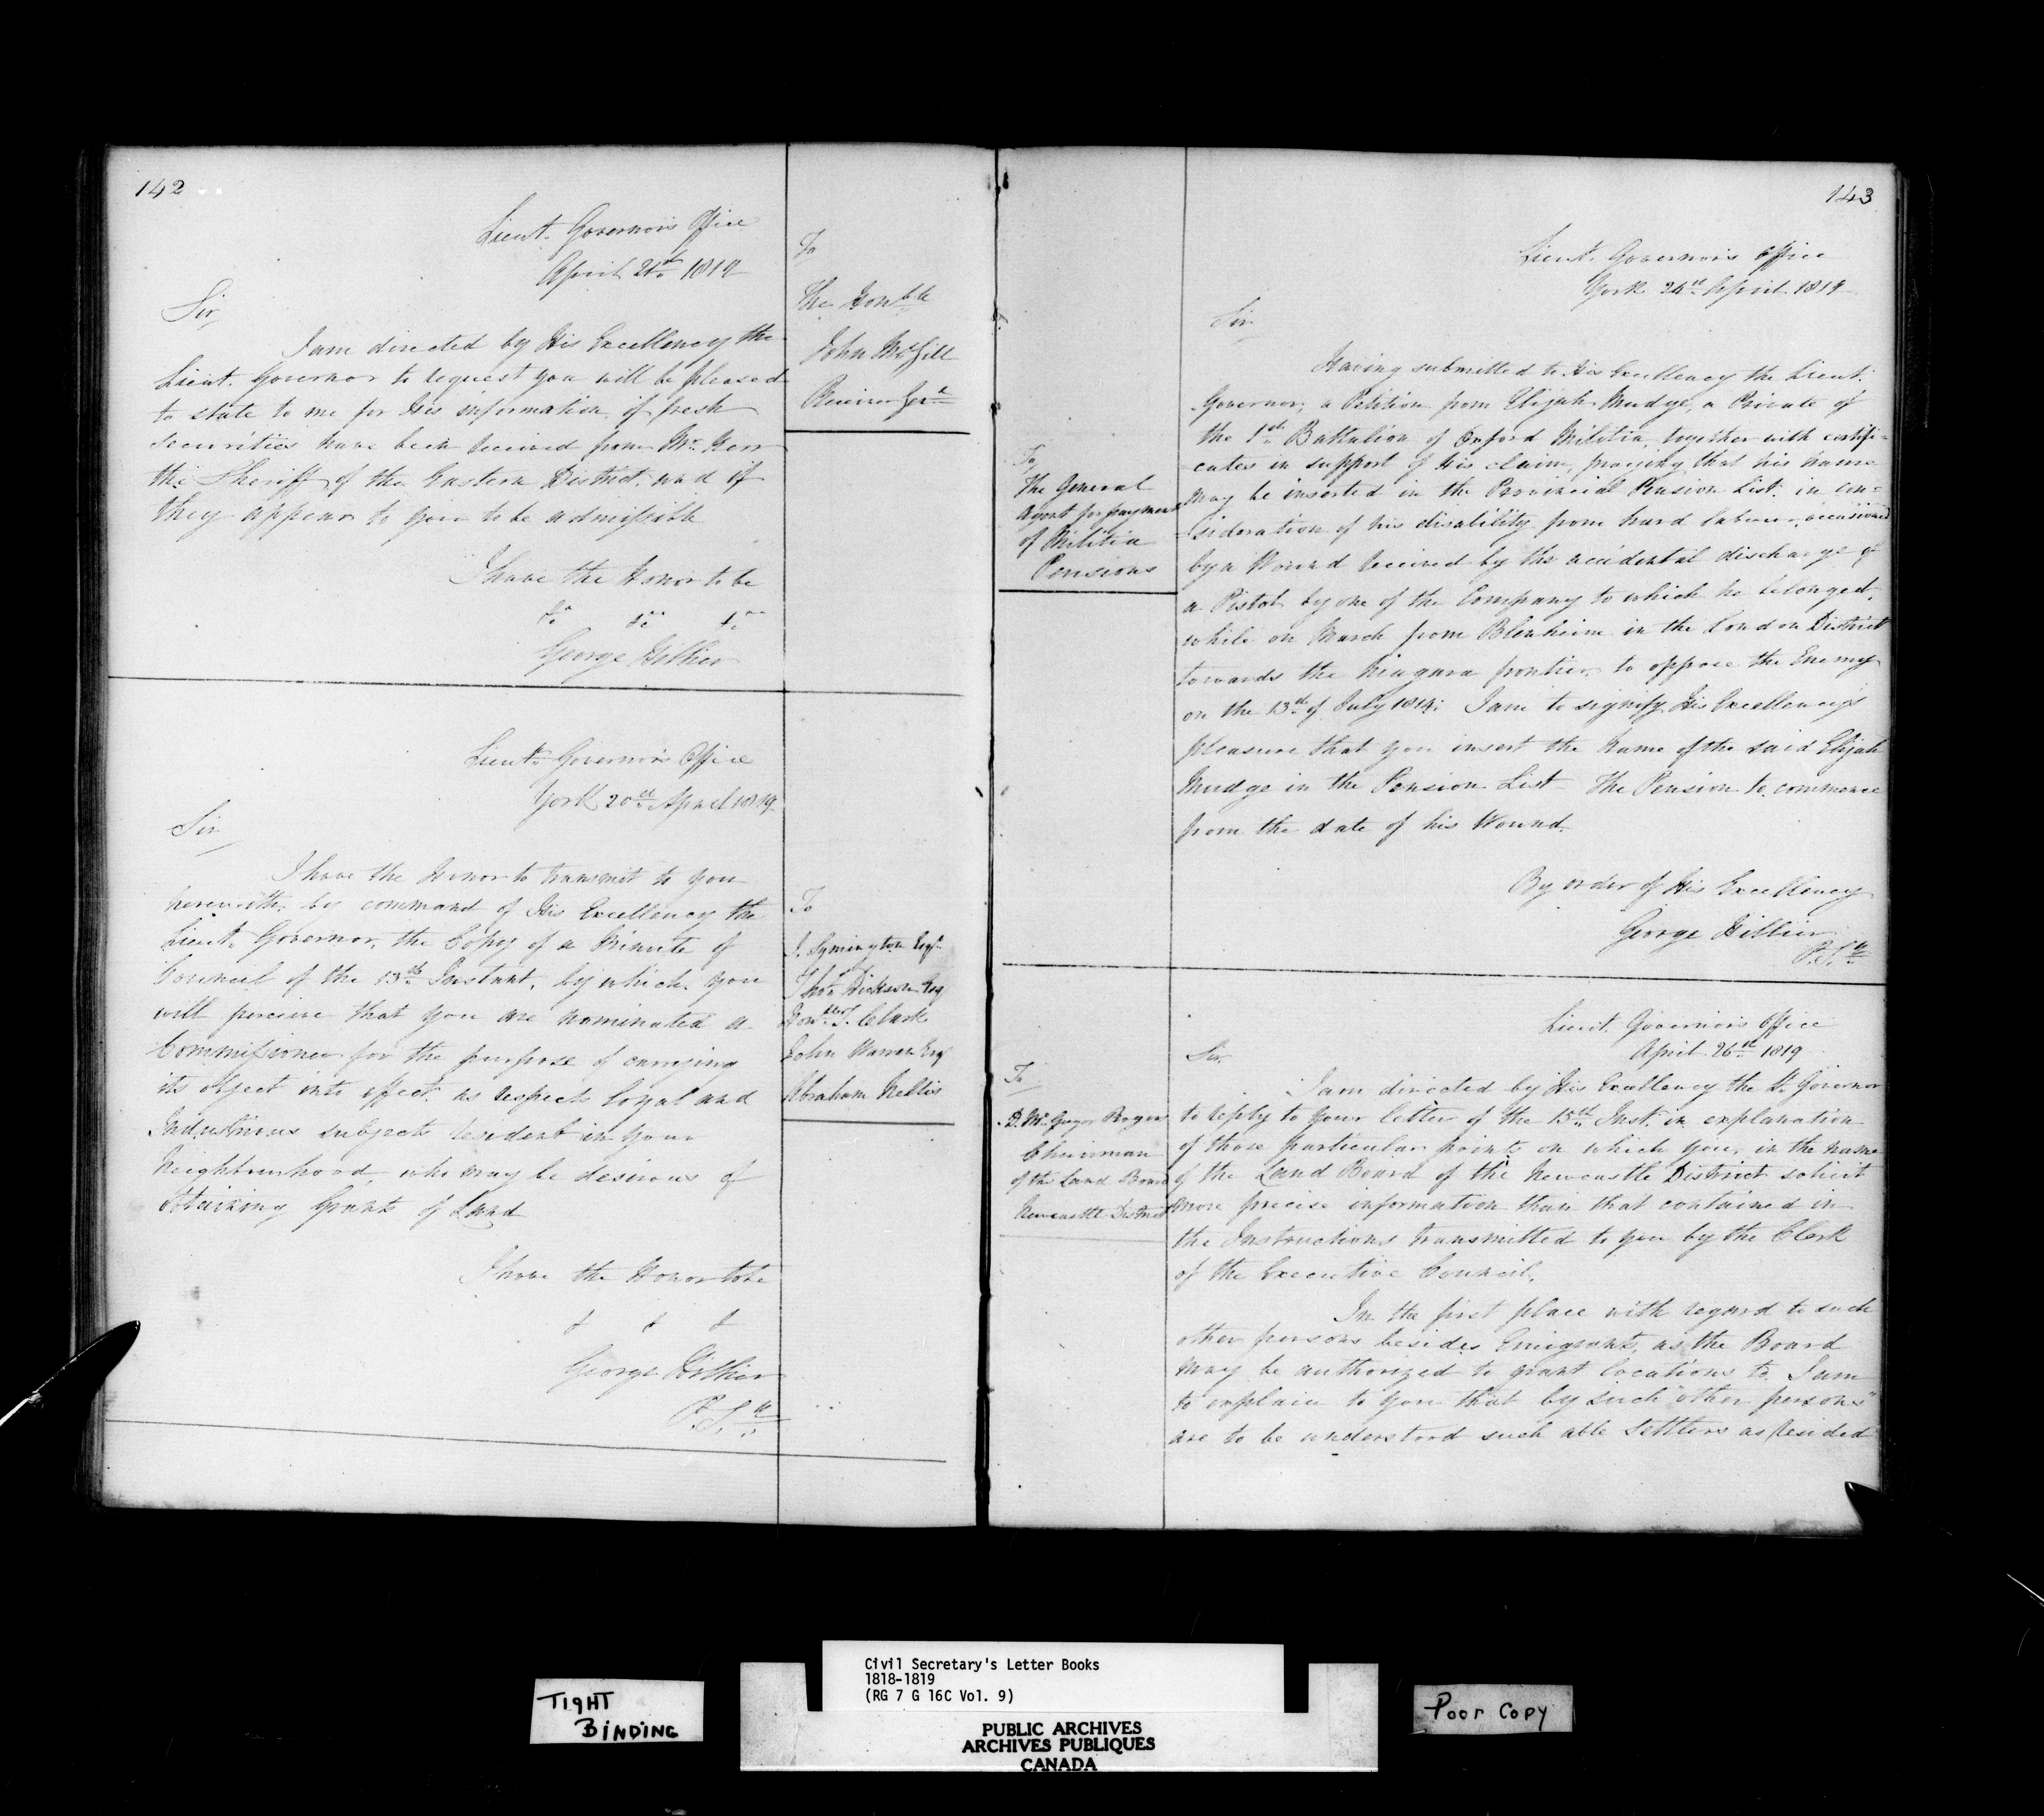 142
Lieut. Governor's Office
April 21st 1819
Sir,
I am directed by His Excellency the
Lieut. Governor to request you will be pleased
to state to me for His information, if fresh
securities have been received from Mr.
the Sheriff of the Eastern District, and if
they appear to you to be admissible
I have the Honor to be
&c &c &c
George Hillier
To
The Honble
John McGill
Receiver Genl
Lieut. Governor's Office
York 20th April 1819
Sir
I have the Honor to transmit to you
herewith, by command of His Excellency the
Lieut. Governor, the Copy of a Minute of
Council of the 13th Instant, by which you
will perceive that you are nominated a
Commissioner for the purpose of carrying
its object into effect, as respects loyal and
Industrious subjects resident in your
Neighbourhood, who may be desirous of
obtaining Grants of Land
I have the Honor to be
& & &
George Hillier
P. Sy
To
J. Symington Esqr
Thos Dickson Esq
Honble T. Clark
John Warren Esq
Abraham Nellis
143
Lieut. Governor's Office
York 24th April 1819
Sir
Having submitted to His Excellency the Lieut.
Governor, a Petition from Elijah Mudge, a Private of
the 1st Battalion of Oxford Militia, together with certifi-
cates in support of his claim, praying that his name
may be inserted in the Provincial Pension List, in con-
sideration of his disability from hard labour, occasioned
by a Wound received by the accidental discharge of
a Pistol by one of the Company to which he belonged,
while on March from Blenheim in the London District
towards the Niagara frontier, to oppose the Enemy
on the 13th of July 1814: I am to signify His Excellency's
pleasure that you insert the name of the said Elijah
Mudge in the Pension List – The Pension to commence
from the date of his Wound.
By order of His Excellency
George Hillier
P. Sy
To
The General
Agent for payment
of Militia
Pensions
Lieut. Governor's Office
April 26th 1819
Sir
I am directed by His Excellency the Lt. Governor
to reply to your letter of the 15th Inst. in explanation
of those particular points on which you, in the name
of the Land Board of the Newcastle District solicit
more precise information than that contained in
the Instructions transmitted to you by the Clerk
of the Executive Council.
In the first place with regard to such
other persons besides Emigrants, as the Board
may be authorized to grant locations to, I am
to explain to you that by such "other persons"
are to be understood such able Settlers as resided
To
D. McGregor Rogers
Chairman
of the Land Board
Newcastle District
TIGHT
BINDING
Civil Secretary's Letter Books
1818-1819
(RG 7 G 16C Vol. 9)
PUBLIC ARCHIVES
ARCHIVES PUBLIQUES
CANADA
Poor Copy